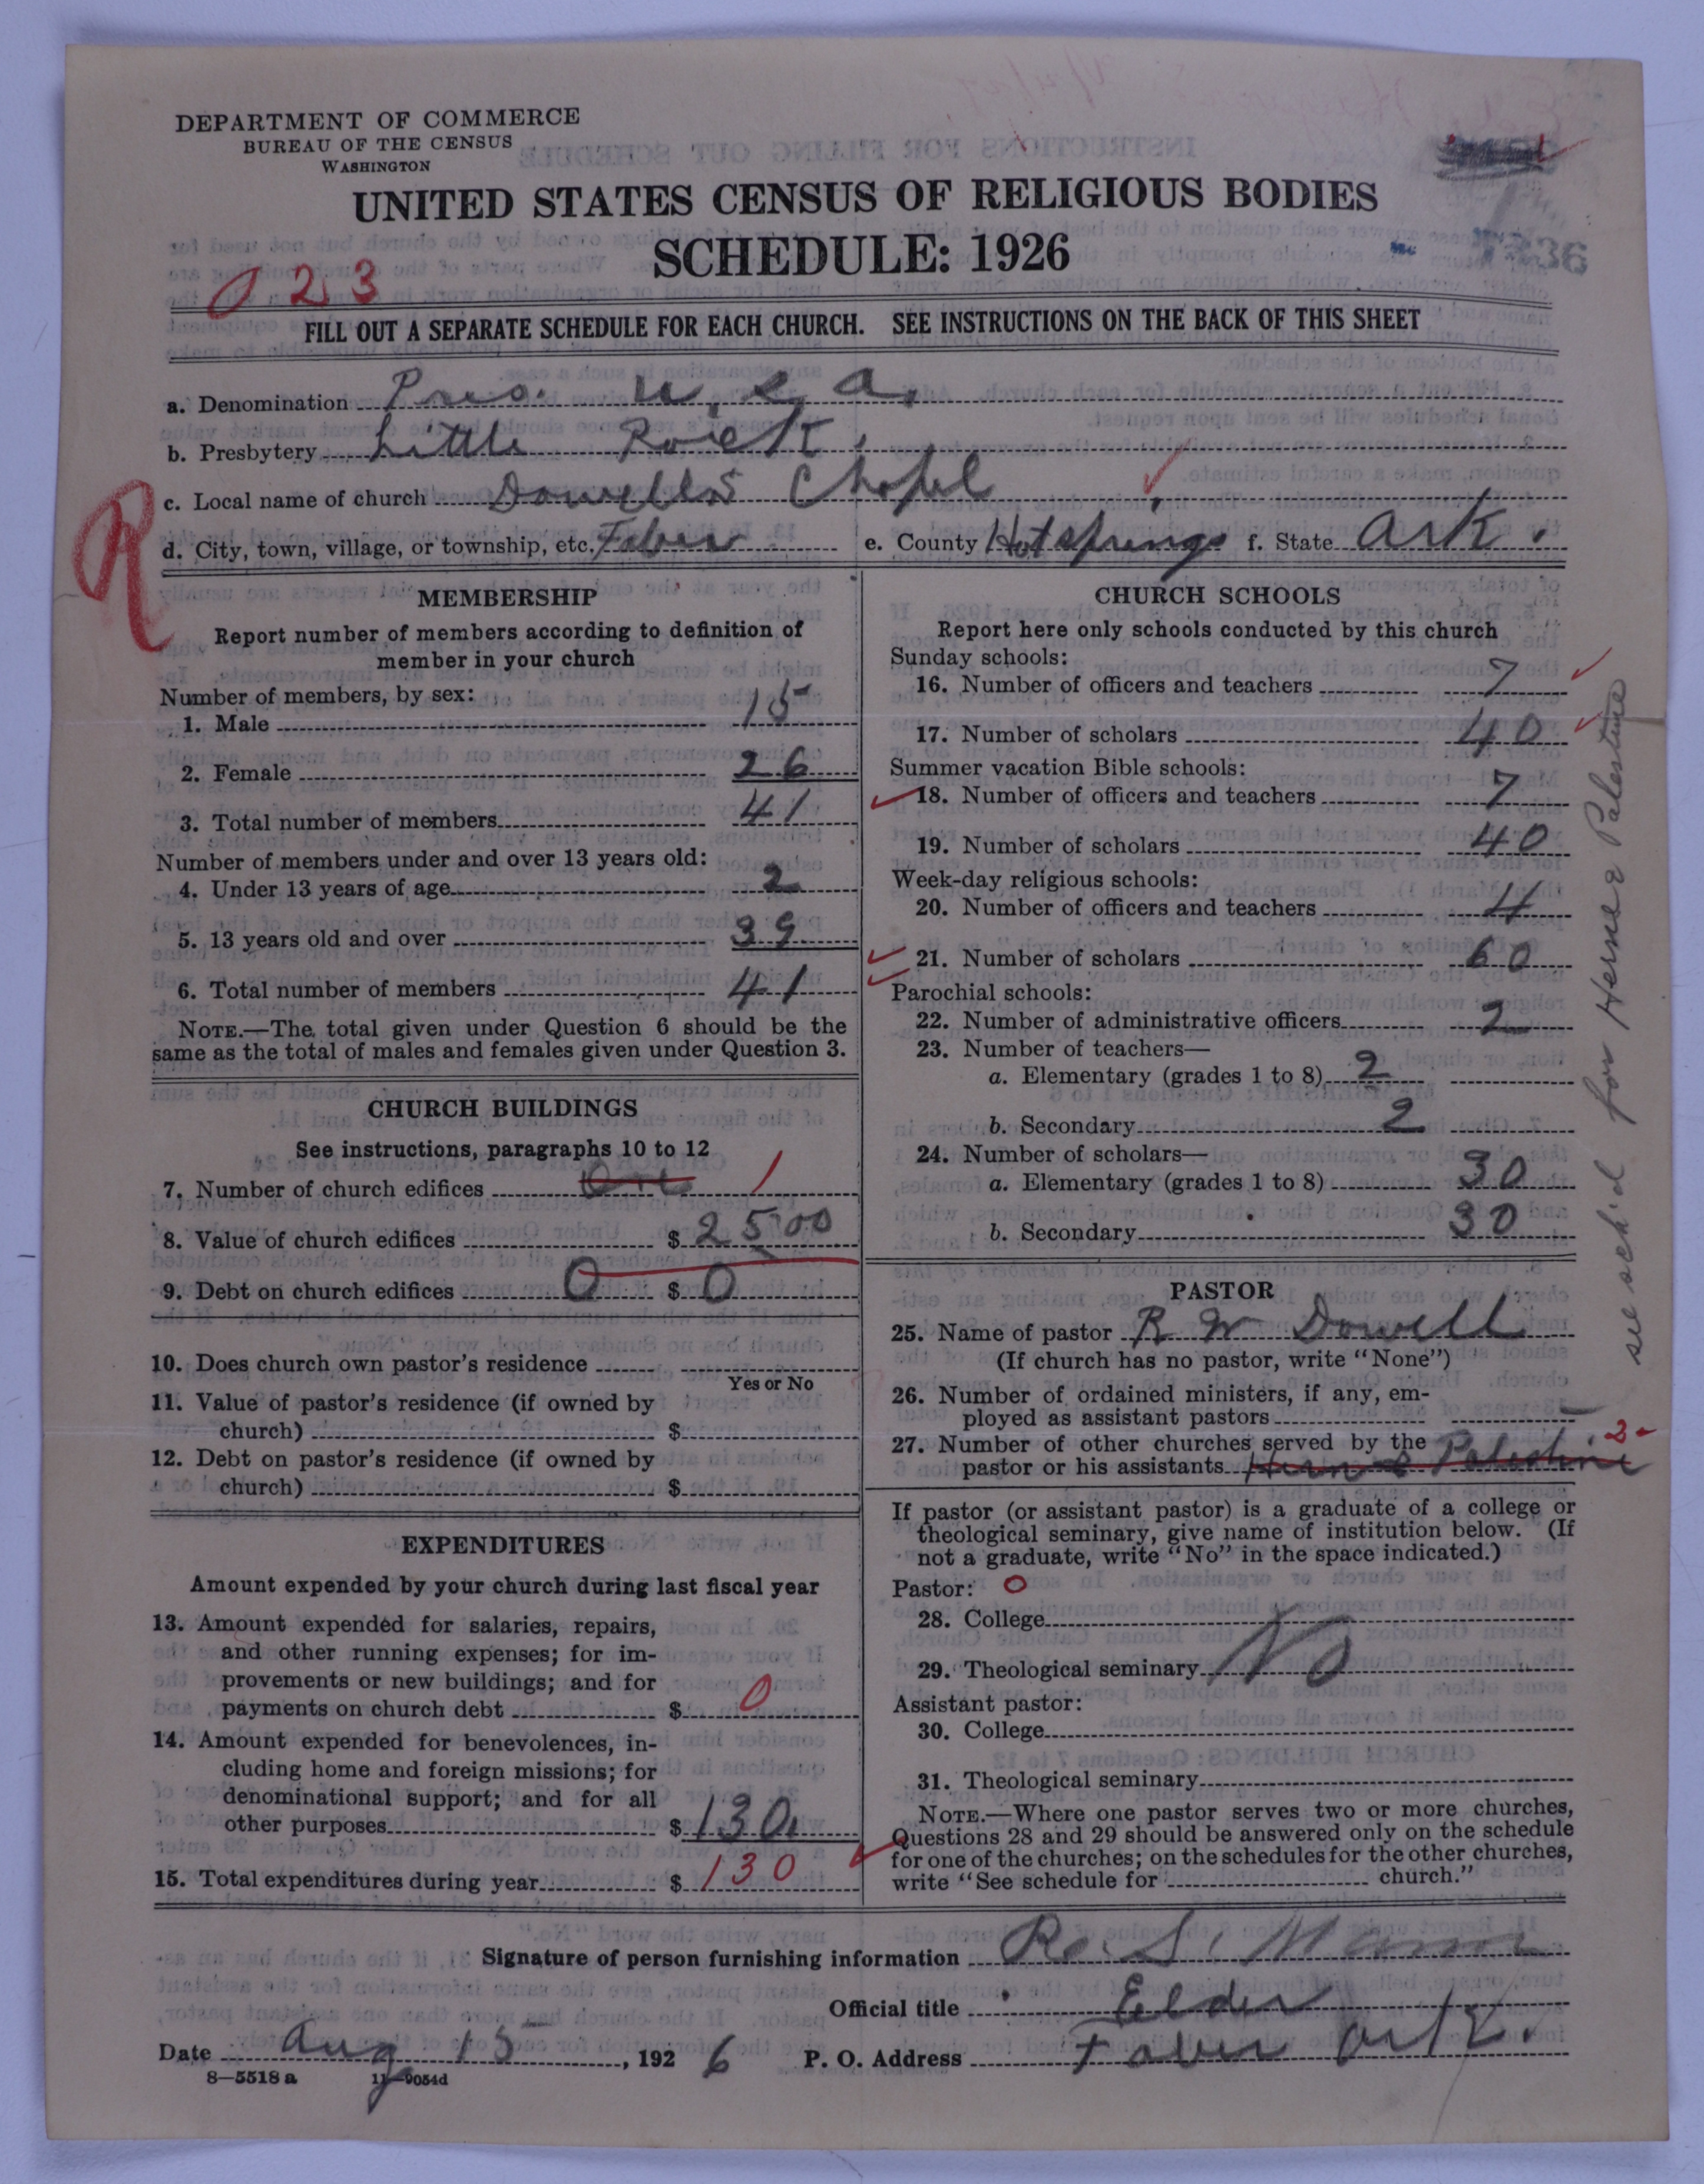 DEPARTMENT OF COMMERCE
BUREAU OF THE CENSUS
WASHINGTON
UNITED STATES CENSUS OF RELIGIOUS BODIES
SCHEDULE: 1926
023
FILL OUT A SEPARATE SCHEDULE FOR EACH CHURCH. SEE INSTRUCTIONS ON THE BACK OF THIS SHEET
a. Denomination Pres. U. S. A.
b. Presbytery Little Rock.
R
c. Local name of church Dowell's Chapel
d. City, town, village, or township, etc. Faber e. County Hot Springs f. State Ark.
MEMBERSHIP
Report number of members according to definition of
member in your church
Number of members, by sex:
1. Male 15
2. Female 26
3. Total number of members 41
Number of members under and over 13 years old:
4. Under 13 years of age 2
5. 13 years old and over 39
6. Total number of members 41
NOTE.—The total given under Question 6 should be the
same as the total of males and females given under Question 3.
CHURCH BUILDINGS
See instructions, paragraphs 10 to 12
7. Number of church edifices One 1
8. Value of church edifices $ 2500
9. Debt on church edifices 0 $ 0
10. Does church own pastor's residence
Yes or No
11. Value of pastor's residence (if owned by
church) $
12. Debt on pastor's residence (if owned by
church) $
EXPENDITURES
Amount expended by your church during last fiscal year
13. Amount expended for salaries, repairs,
and other running expenses; for im-
provements or new buildings; and for
payments on church debt $ 0
14. Amount expended for benevolences, in-
cluding home and foreign missions; for
denominational support; and for all
other purposes $ 130
15. Total expenditures during year $ 130
CHURCH SCHOOLS
Report here only schools conducted by this church
Sunday schools:
16. Number of officers and teachers 7
17. Number of scholars 40
Summer vacation Bible schools:
18. Number of officers and teachers 7
19. Number of scholars 40
Week-day religious schools:
20. Number of officers and teachers 4
21. Number of scholars 60
Parochial schools:
22. Number of administrative officers 2
23. Number of teachers—
a. Elementary (grades 1 to 8) 2
b. Secondary 2
24. Number of scholars—
a. Elementary (grades 1 to 8) 30
b. Secondary 30
PASTOR
25. Name of pastor R W Dowell
(If church has no pastor, write "None")
26. Number of ordained ministers, if any, em-
ployed as assistant pastors —
27. Number of other churches served by the 2
pastor or his assistants Palestine
If pastor (or assistant pastor) is a graduate of a college or
theological seminary, give name of institution below. (If
not a graduate, write "No" in the space indicated.)
Pastor: 0
28. College
29. Theological seminary No
Assistant pastor:
30. College
31. Theological seminary
NOTE.—Where one pastor serves two or more churches,
Questions 28 and 29 should be answered only on the schedule
for one of the churches; on the schedules for the other churches,
write "See schedule for church."
see sch'd for Palestine
Signature of person furnishing information
Official title Elder
Date Aug 15, 1926 P. O. Address Faber Ark.
8—5518 a 11—9054d